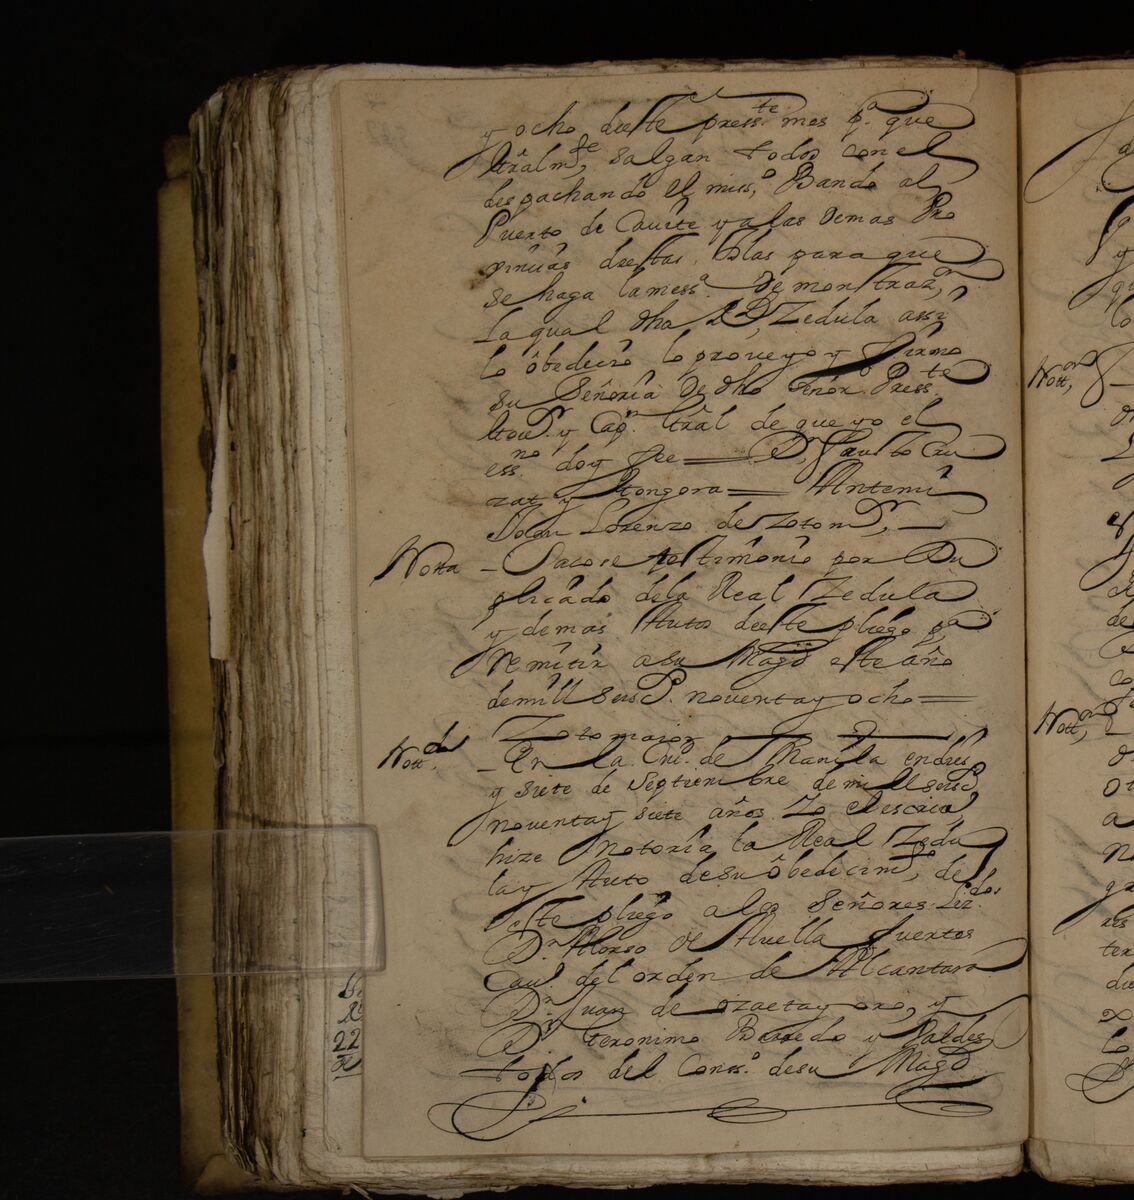 y ocho deeste press.te mes p.a que
Gralm.te salgan todos con el
despachando el miss.o Bando al
Puerto de Cauite y alas demas Pro
vinçias deestas Islas para que
se haga la mess.a demonstraz.on
la qual dha Zedula assi
lo obedeçio lo proveyo y firmo
su Señoria de dho Señor Press.te
Gou.r y Cap.n Gral de que yo el
ess.no doy fee = D.n Fausto Cru
zat y Gongora = Antemi
Don Lorenzo de Zotom.r
Notta - Sacose testimonio por Du
plicado dela Real Zedula
y demas Autos deeste pliego p.a
Remitir a su Magd este año
de mill seisc.s noventa y ocho =
Zotomaior
Nott.da - En la Ciu.d de Manila en dies
y siete de Septiembre de mill seisc.s
noventa y siete años Yo el escriu.o
hize notoria la Real Zedu
la y Auto de su obedecim.to de
este pliego alos Señores Liz.dos
D.n Alonso de Auella fuertes
Cau.o del orden de Alcantara
D.n Juan de ozaeta y oro, y
D.n Geronimo Barredo y Valdes
todos del Cons.o de su Magd
22
Nott.on
Nott.on